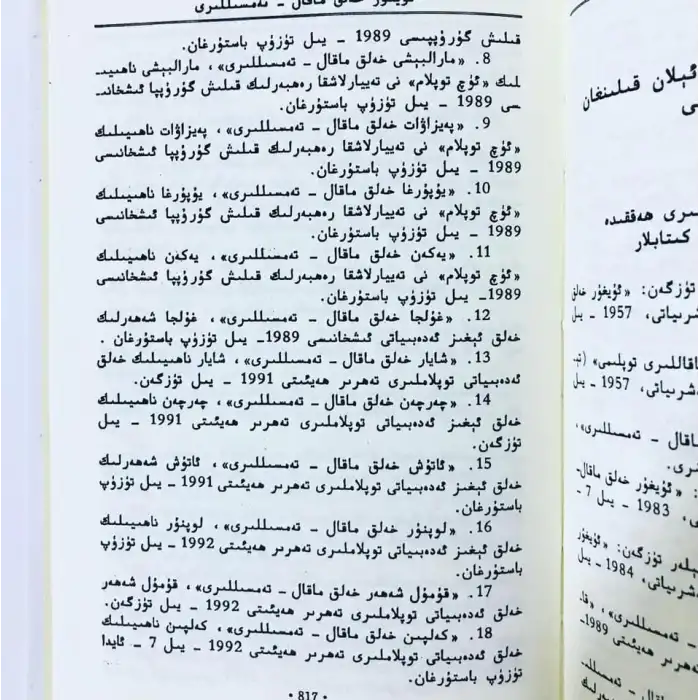 ئۇيغۇر خەلق ماقال ـ تەمسىللىرى
قىلىش گۇرۇپپىسى 1989 ـ يىل تۈزۈپ باستۇرغان.
8. «مارالبېشى خەلق ماقال ـ تەمسىللىرى»، مارالبېشى ناھىيىـ
لىك «ئۈچ توپلام» نى تەييارلاشقا رەھبەرلىك قىلىش گۇرۇپپا ئىشخانىـ
سى 1989 ـ يىل تۈزۈپ باستۇرغان.
9. «پەيزاۋات خەلق ماقال ـ تەمسىللىرى»، پەيزاۋات ناھىيىلىك
«ئۈچ توپلام» نى تەييارلاشقا رەھبەرلىك قىلىش گۇرۇپپا ئىشخانىسى
1989 ـ يىل تۈزۈپ باستۇرغان.
10. «يۇپۇرغا خەلق ماقال ـ تەمسىللىرى»، يۇپۇرغا ناھىيىلىك
«ئۈچ توپلام» نى تەييارلاشقا رەھبەرلىك قىلىش گۇرۇپپا ئىشخانىسى
1989 ـ يىل تۈزۈپ باستۇرغان.
11. «يەكەن خەلق ماقال ـ تەمسىللىرى»، يەكەن ناھىيىلىك
«ئۈچ توپلام» نى تەييارلاشقا رەھبەرلىك قىلىش گۇرۇپپا ئىشخانىسى
1989ـ يىل تۈزۈپ باستۇرغان.
12. «غۇلجا خەلق ماقال ـ تەمسىللىرى»، غۇلجا شەھەرلىك
خەلق ئېغىز ئەدەبىياتى ئىشخانىسى 1989ـ يىل تۈزۈپ باستۇرغان .
13. «شايار خەلق ماقال ـ تەمسىللىرى»، شايار ناھىيىلىك خەلق
ئەدەبىياتى توپلاملىرى تەھرىر ھەيئىتى 1991 ـ يىل تۈزگەن.
14. «چەرچەن خەلق ماقال ـ تەمسىللىرى»، چەرچەن ناھىيىلىك
خەلق ئېغىز ئەدەبىياتى توپلاملىرى تەھرىر ھەيئىتى 1991 ـ يىل
تۈزگەن.
15. «ئاتۇش خەلق ماقال ـ تەمسىللىرى»، ئاتۇش شەھەرلىك
خەلق ئېغىز ئەدەبىياتى توپلاملىرى تەھرىر ھەيئىتى 1991 ـ يىل تۈزۈپ
باستۇرغان.
16. «لوپنۇر خەلق ماقال ـ تەمسىللىرى»، لوپنۇر ناھىيىلىك
خەلق ئېغىز ئەدەبىياتى توپلاملىرى تەھرىر ھەيئىتى 1992 ـ يىل تۈزۈپ
باستۇرغان.
17. «قۇمۇل شەھەر خەلق ماقال ـ تەمسىللىرى»، قۇمۇل شەھەر
خەلق ئەدەبىياتى توپلاملىرى تەھرىر ھەيئىتى 1992 ـ يىل تۈزگەن.
18. «كەلپىن خەلق ماقال ـ تەمسىللىرى»، كەلپىن ناھىيىلىك
خەلق ئېغىز ئەدەبىياتى توپلاملىرى تەھرىر ھەيئىتى 1992 ـ يىل 7 ـ ئايدا
تۈزۈپ باستۇرغان.
· 817 ·
ئېلان قىلىنغان
ھەققىدە
كىتابلار
تۈزگەن: «ئۇيغۇر خەلق
1957 ـ يىل
توپلىمى»
1957 ـ يىل
ماقال ـ تەمسىللىرى»،
«ئۇيغۇر خەلق ماقال
1983 ـ يىل 7 ـ
تۈزگەن: «ئۇيغۇر
1984 ـ يىل
ھەيئىتى 1989ـ